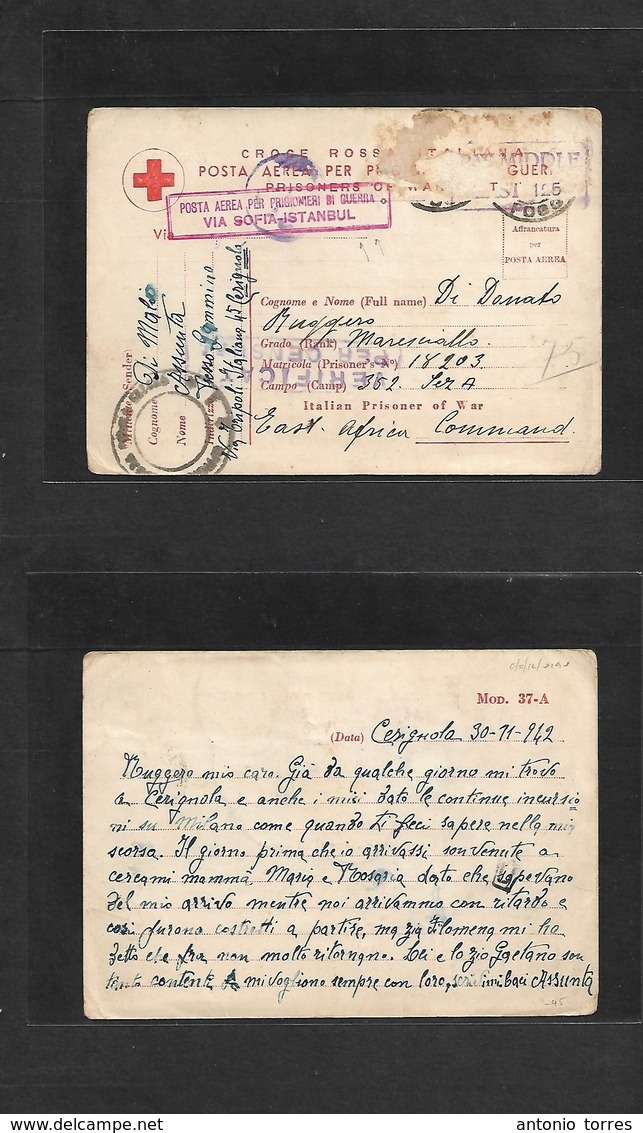 CROCE ROSSA ITALIANA
POSTA AEREA PER PRIG GUER
PRISONERS OF WAR
MIDDLE
ST 125
FOGG
POSTA AEREA PER PRIGIONIERI DI GUERRA
VIA SOFIA-ISTANBUL
Via
Affrancatura
per
POSTA AEREA
Mittente Sender:
Cognome Di Malio
Nome Assunta
Indirizzo
Via 45 Cerignola
Cognome e Nome (Full name) Di Donato
Ruggero
Grado (Rank) Maresciallo
Matricola (Prisoner's No) 18203
Campo (Camp) 362 Sez A
Italian Prisoner of War
East Africa Command
VERIFICA
PER CENSU
75
Mod. 37-A
(Data) Cerignola 30-11-942
Ruggero mio caro. Già da qualche giorno mi trovo
a Cerignola e anche i miei dato le continue incursio
ni su Milano come quando ti feci sapere nella mia
scorsa. Il giorno prima che io arrivassi son venute a
cercami mammà Maria e Rosaria dato che sapevano
del mio arrivo mentre noi arrivammo con ritardo e
così furono costretti a partire, ma zia Filomena mi ha
detto che fra non molto ritornano. Lei e lo zio Gaetano son
tanto contente mi vogliono sempre con loro, scrivimi baci Assunta
-45
antonio torres